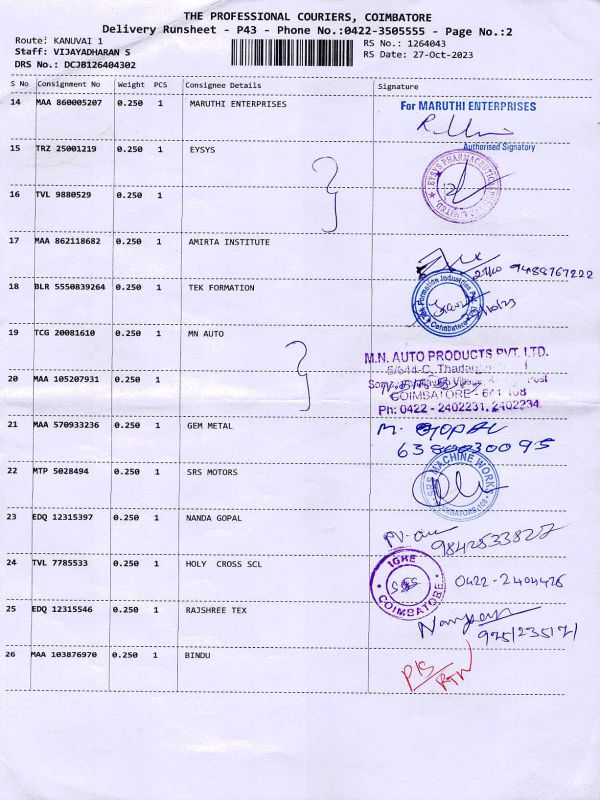 THE PROFESSIONAL COURIERS, COIMBATORE
Delivery Runsheet - P43 - Phone No.:0422-3505555 - Page No.:2
Route: KANUVAI 1
RS No.: 1264043
Staff: VIJAYADHARAN S
RS Date: 27-Oct-2023
DRS No.: DCJB126404302
S No Consignment No Weight PCS Consignee Details Signature
14 MAA 860005207 0.250 1 MARUTHI ENTERPRISES
For MARUTHI ENTERPRISES
Authorised Signatory
15 TRZ 25001219 0.250 1 EYSYS
16 TVL 9880529 0.250 1
17 MAA 862118682 0.250 1 AMIRTA INSTITUTE
27/10 9488767222
18 BLR 5550839264 0.250 1 TEK FORMATION
19 TCG 20081610 0.250 1 MN AUTO
M.N. AUTO PRODUCTS PVT. LTD.
5/644-C,
20 MAA 105207931 0.250 1
COIMBATORE - 641 108
Ph: 0422 - 2402231, 2402234
21 MAA 570933236 0.250 1 GEM METAL
M. GOPAL
6380030095
22 MTP 5028494 0.250 1 SRS MOTORS
SRS MACHINE WORKS
23 EDQ 12315397 0.250 1 NANDA GOPAL
9842533827
24 TVL 7785533 0.250 1 HOLY CROSS SCL
COIMBATORE
0422-2404426
25 EDQ 12315546 0.250 1 RAJSHREE TEX
26 MAA 103876970 0.250 1 BINDU